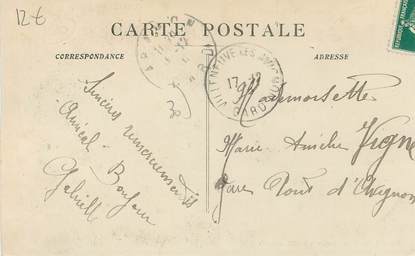 12 €
CARTE POSTALE
CORRESPONDANCE
ADRESSE
VILLENEUVE LES AVIGNON
17 - 12
GARD
Mademoiselle
Marie Vigne
Gare Pont d'Avignon
Sincères remerciements
Amical Bonjour
Gabrielle